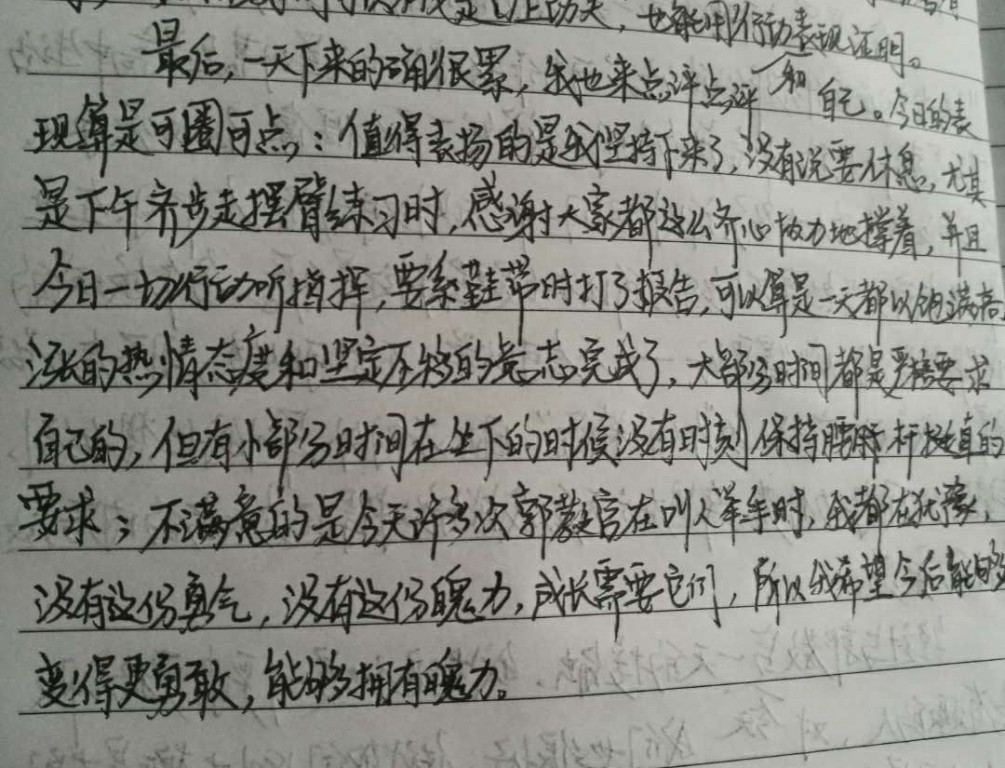 是以上功夫，也能用行动表现证明。
最后，一天下来的确很累，我也来点评点评和自己。今日的表
现算是可圈可点：值得表扬的是我坚持下来了，没有说要休息，尤其
是下午齐步走摆臂练习时，感谢大家都这么齐心协力地撑着，并且
今日一切行动听指挥，要系鞋带时打了报告，可以算是一天都以饱满高
涨的热情态度和坚定不移的意志完成了，大部分时间都是严格要求
自己的，但有小部分时间在坐下的时候没有时刻保持腰杆挺直的
要求；不满意的是今天许多次郭教官在叫人举手时，我都在犹豫，
没有这份勇气，没有这份魄力，成长需要它们，所以我希望今后能够
变得更勇敢，能够拥有魄力。